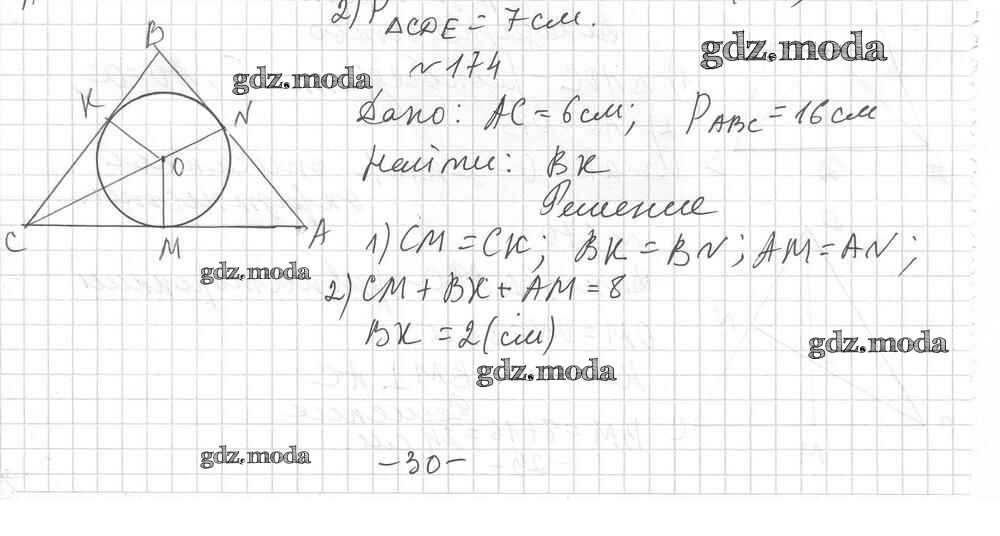 2) P△CDE = 7см.
gdz.moda
gdz.moda
№174
Дано: AC = 6см; P ABC = 16см
Найти: BK
Решение
1) CM = CK; BK = BN; AM = AN;
gdz.moda
2) CM + BK + AM = 8
BK = 2(см)
gdz.moda
gdz.moda
gdz.moda
-30-
B
K
N
O
C
M
A